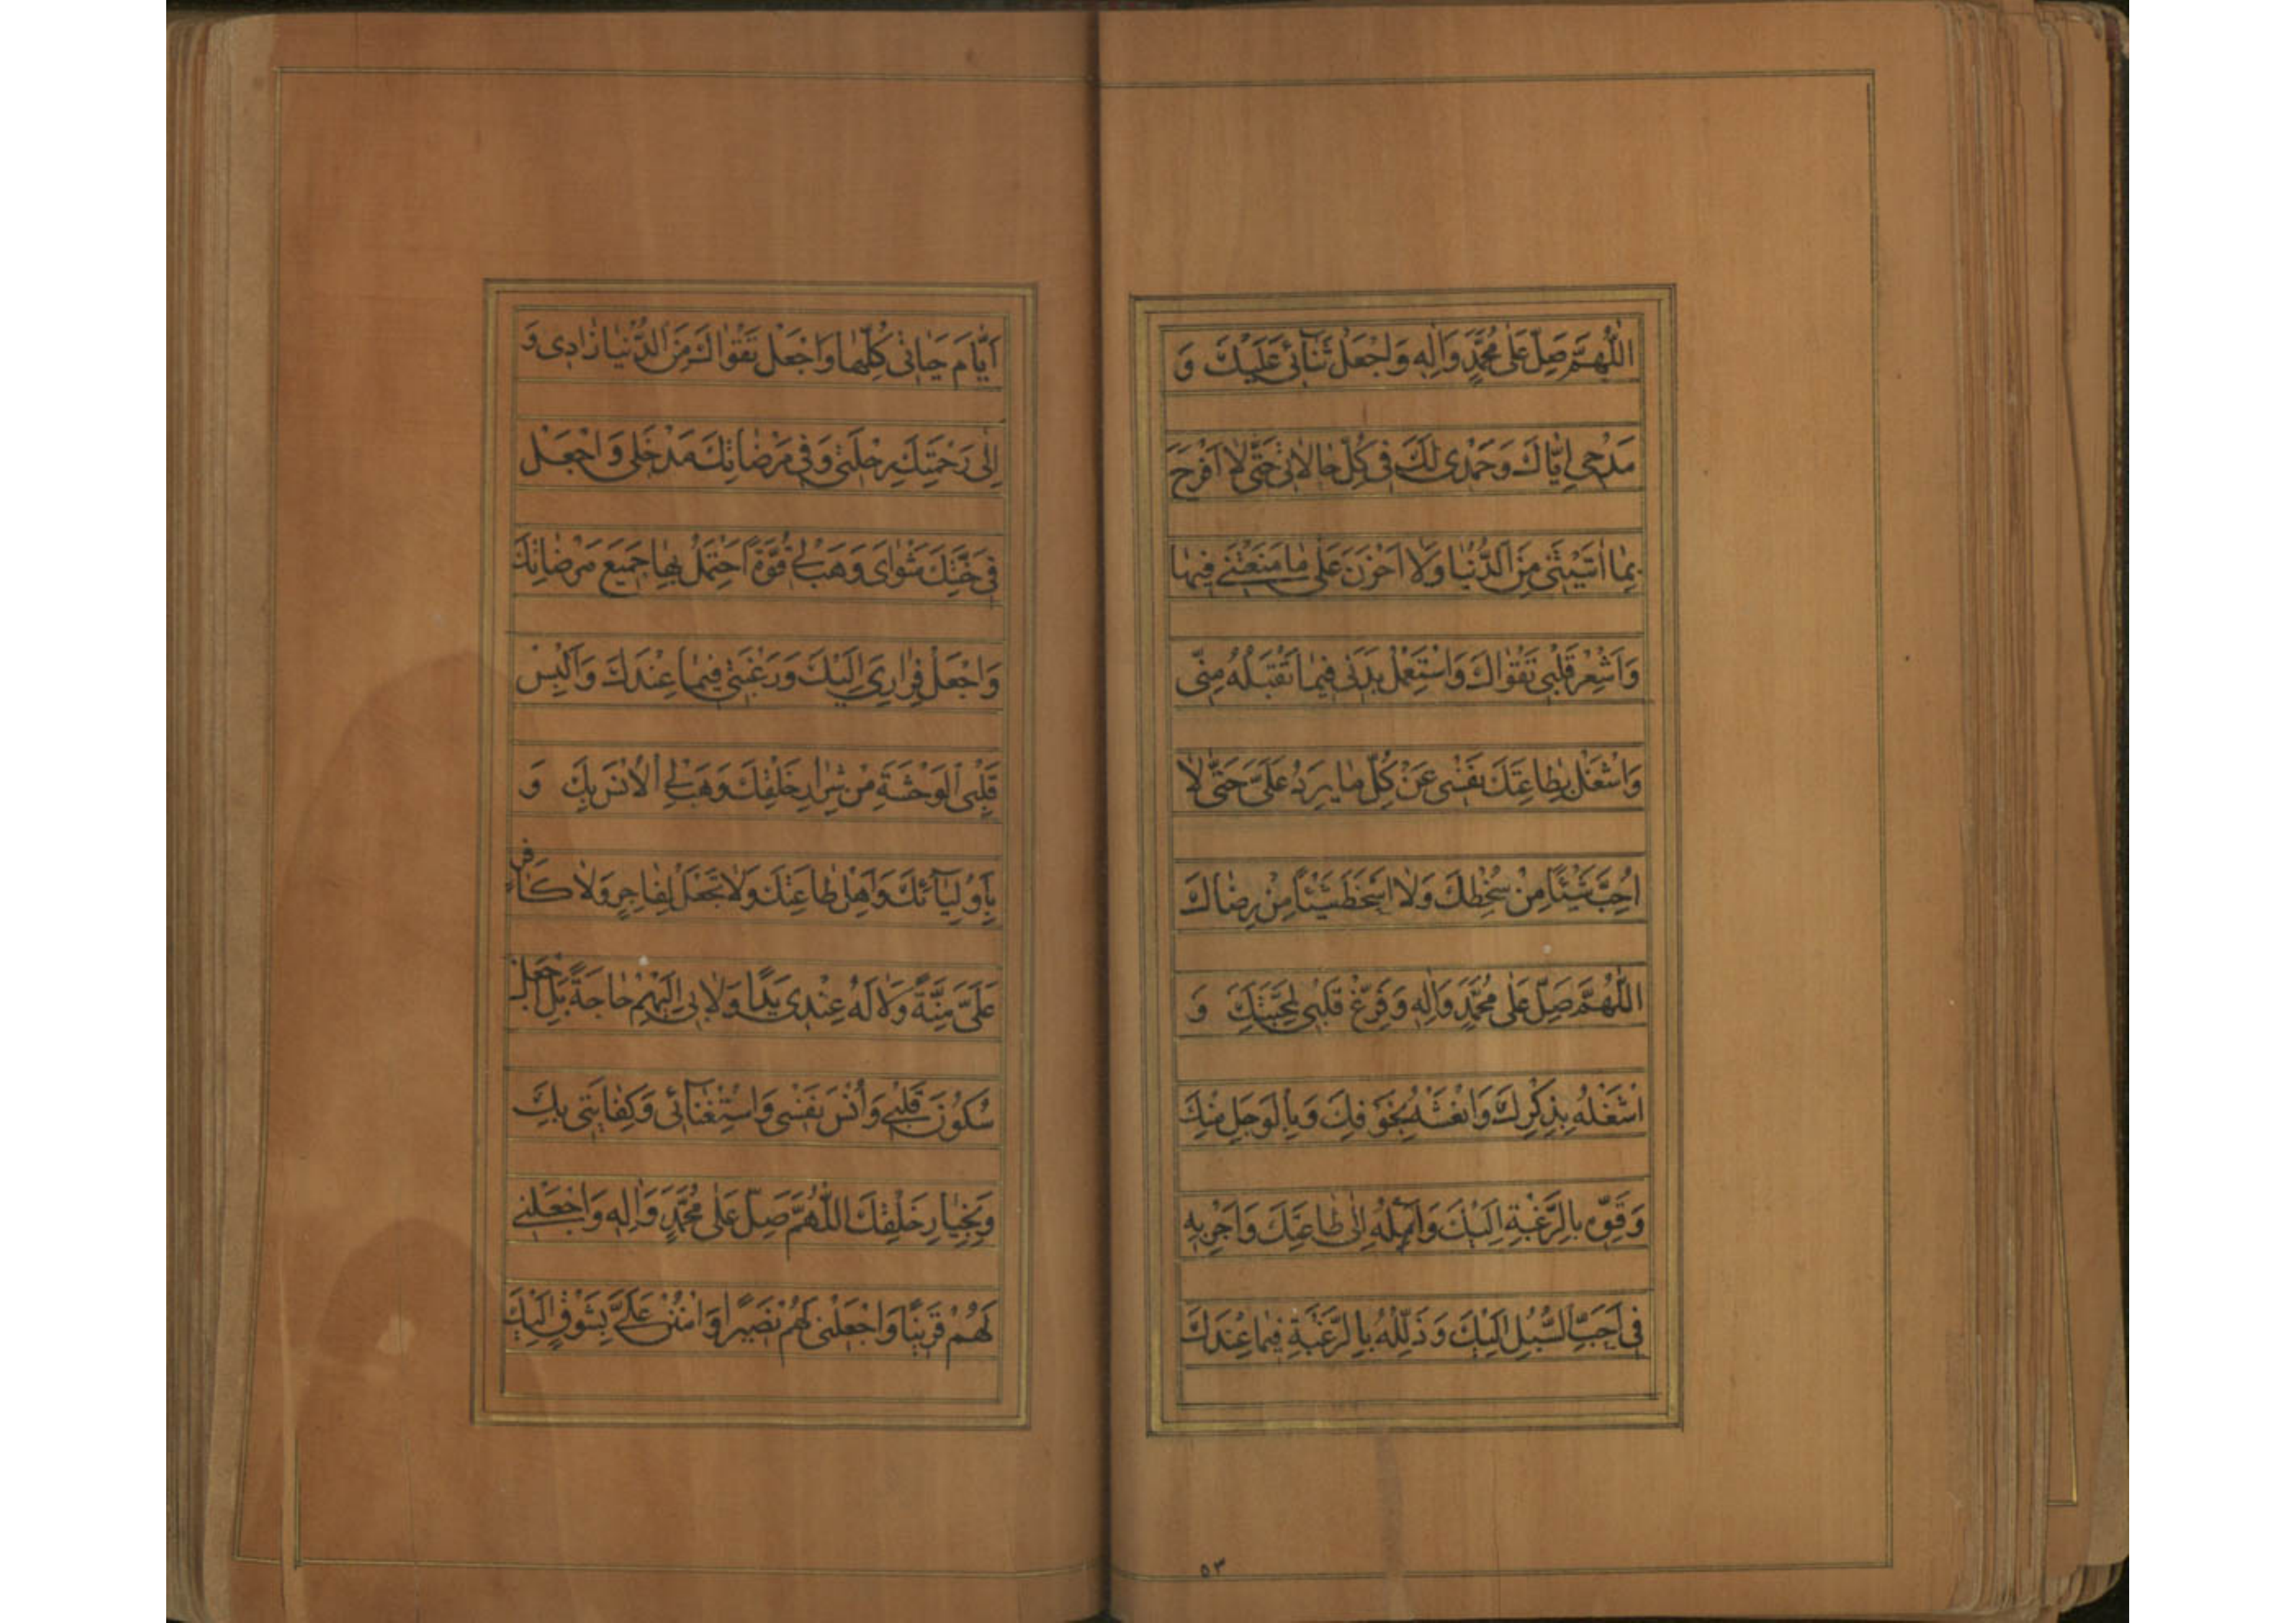 اَللّٰهُمَّ صَلِّ عَلٰى مُحَمَّدٍ وَاٰلِهِ وَاجْعَلْ ثَنٰآئى عَلَيْكَ وَ
مَدْحى اِيّٰاكَ وَحَمْدى لَكَ فى كُلِّ حٰالاٰتى حَتّٰى لاٰ اَفْرَحَ
بِمٰا اٰتَيْتَنى مِنَ الدُّنْيٰا وَلاٰ اَحْزَنَ عَلٰى مٰا مَنَعْتَنى فيهٰا
وَاَشْعِرْ قَلْبى تَقْوٰاكَ وَاسْتَعْمِلْ بَدَنى فيمٰا تَقْبَلُهُ مِنّى
وَاشْغَلْ بِطٰاعَتِكَ نَفْسى عَنْ كُلِّ مٰا يَرِدُ عَلَىَّ حَتّٰى لاٰ
اُحِبَّ شَيْئًا مِنْ سُخْطِكَ وَلاٰ اَسْخَطَ شَيْئًا مِنْ رِضٰاكَ
اَللّٰهُمَّ صَلِّ عَلٰى مُحَمَّدٍ وَاٰلِهِ وَفَرِّغْ قَلْبى لِمَحَبَّتِكَ وَ
اشْغَلْهُ بِذِكْرِكَ وَانْعَشْهُ بِخَوْفِكَ وَبِالْوَجَلِ مِنْكَ
وَقَوِّهِ بِالرَّغْبَةِ اِلَيْكَ وَاَمِلْهُ اِلٰى طٰاعَتِكَ وَاَجْرِ بِهِ
فى اَحَبِّ السُّبُلِ اِلَيْكَ وَذَلِّلْهُ بِالرَّغْبَةِ فيمٰا عِنْدَكَ
٥٣
اَيّٰامَ حَيٰاتى كُلِّهٰا وَاجْعَلْ تَقْوٰاكَ مِنَ الدُّنْيٰا زٰادى وَ
اِلٰى رَحْمَتِكَ رِحْلَتى وَفى مَرْضٰاتِكَ مَدْخَلى وَاجْعَلْ
فى جَنَّتِكَ مَثْوٰاىَ وَهَبْ لى قُوَّةً اَحْتَمِلُ بِهٰا جَميعَ مَرْضٰاتِكَ
وَاجْعَلْ فِرٰارِىَ اِلَيْكَ وَرَغْبَتى فيمٰا عِنْدَكَ وَاَلْبِسْ
قَلْبِىَ الْوَحْشَةَ مِنْ شِرٰارِ خَلْقِكَ وَهَبْ لِىَ الْاُنْسَ بِكَ وَ
بِاَوْلِيٰآئِكَ وَاَهْلِ طٰاعَتِكَ وَلاٰ تَجْعَلْ لِفٰاجِرٍ وَلاٰ كٰافِرٍ
عَلَىَّ مِنَّةً وَلاٰ لَهُ عِنْدى يَدًا وَلاٰ بى اِلَيْهِمْ حٰاجَةً بَلِ اجْعَلْ
سُكُونَ قَلْبى وَاُنْسَ نَفْسى وَاسْتِغْنٰآئى وَكِفٰايَتى بِكَ
وَبِخِيٰارِ خَلْقِكَ اَللّٰهُمَّ صَلِّ عَلٰى مُحَمَّدٍ وَاٰلِهِ وَاجْعَلْنى
لَهُمْ قَرينًا وَاجْعَلْنى لَهُمْ نَصيرًا وَامْنُنْ عَلَىَّ بِشَوْقٍ اِلَيْكَ